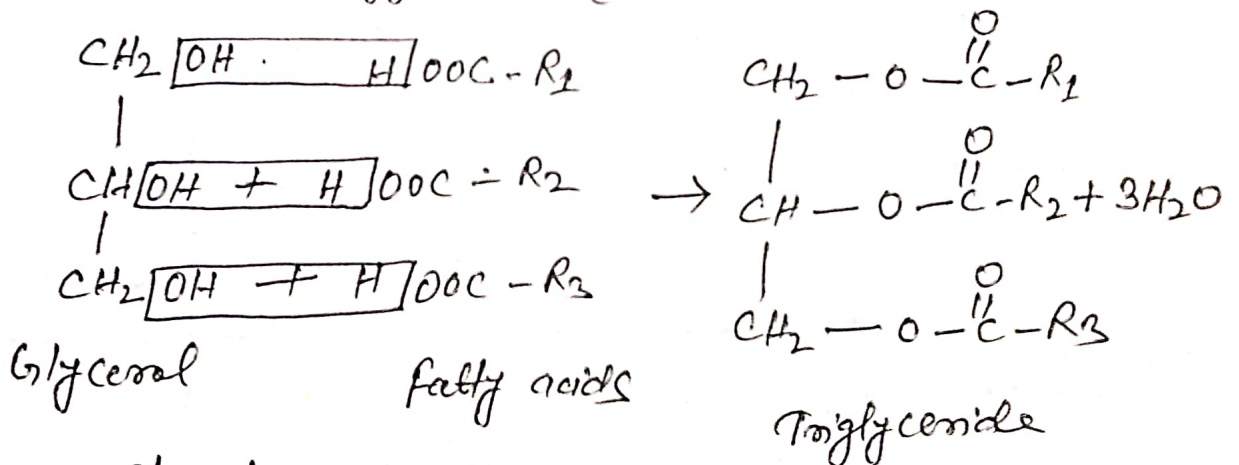 CH2 OH . H OOC - R1
CH OH + H OOC - R2
CH2 OH + H OOC - R3
Glycerol
fatty acids
→
O
CH2 - O - C - R1
O
CH - O - C - R2 + 3H2O
O
CH2 - O - C - R3
Triglyceride